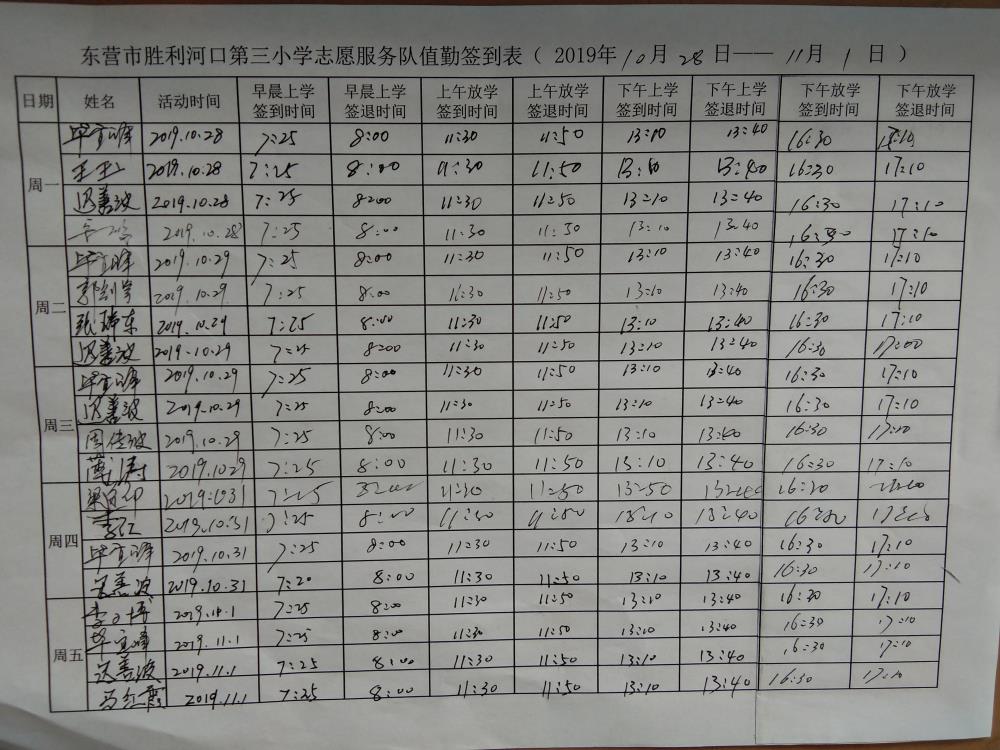 东营市胜利河口第三小学志愿服务队值勤签到表（ 2019年 10月 28日—— 11月 1日 ）
日期 姓名 活动时间 早晨上学签到时间 早晨上学签退时间 上午放学签到时间 上午放学签退时间 下午上学签到时间 下午上学签退时间 下午放学签到时间 下午放学签退时间
周一
2019.10.28 7:25 8:00 11:30 11:50 13:10 13:40 16:30
2019.10.28 7:25 8:00 11:30 11:50 13:10 13:40 16:30 17:10
迟善波 2019.10.28 7:25 8:00 11:30 11:50 13:10 13:40 16:30 17:10
2019.10.28 7:25 8:00 11:30 11:50 13:10 13:40 16:30 17:10
周二
2019.10.29 7:25 8:00 11:30 11:50 13:10 13:40 16:30 17:10
2019.10.29 7:25 8:00 16:30 11:50 13:10 13:40 16:30 17:10
张瑞东 2019.10.29 7:25 8:00 11:30 11:50 13:10 13:40 16:30 17:10
迟善波 2019.10.29 7:25 8:00 11:30 11:50 13:10 13:40 16:30 17:00
周三
2019.10.29 7:25 8:00 11:30 11:50 13:10 13:40 16:30 17:10
迟善波 2019.10.29 7:25 8:00 11:30 11:50 13:10 13:40 16:30 17:10
周佳波 2019.10.29 7:25 8:00 11:30 11:50 13:10 13:40 16:30 17:10
2019.1029 7:25 8:00 11:30 11:50 13:10 13:40 16:30 17:10
周四
7:25 11:30 11:50 13:50 16:30
2019.10.31 7:25 8:00 13:40
2019.10.31 7:25 8:00 11:30 11:50 13:10 13:40 16:30 17:10
迟善波 2019.10.31 7:20 8:00 11:30 11:50 13:10 13:40 16:30 17:10
周五
2019.11.1 7:25 8:00 11:30 11:50 13:10 13:40 16:30 17:10
2019.11.1 7:25 8:00 11:30 11:50 13:10 13:40 16:30 17:10
迟善波 2019.11.1 7:25 8:00 11:30 11:50 13:10 13:40 16:30 17:10
马红霞 2019.11.1 7:25 8:00 11:30 11:50 13:10 13:40 16:30 17:10